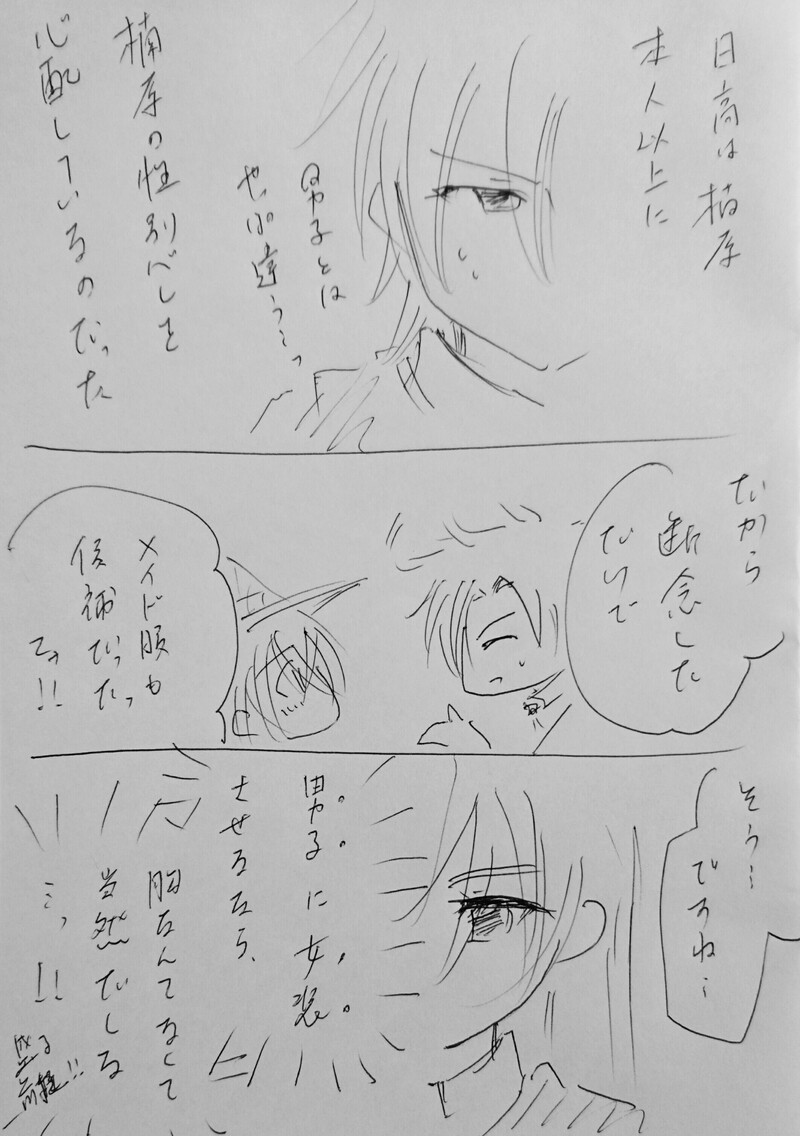 日高は楠原
本人以上に
男子とは
やっぱ違う…っ
楠原の性別バレを
心配しているのだった
だから
断念した
だけで
メイド服も
候補だったっ
てっ!!
そう…
ですね…
男子に女装
させるなら、
胸なんてなくて
当然だしな
…っ!!